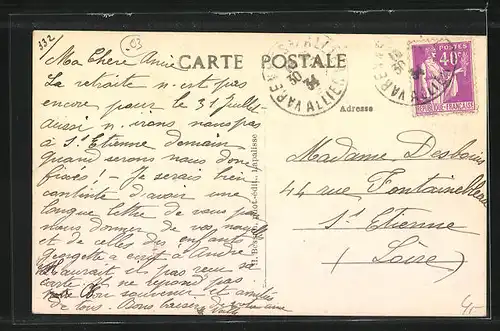 332
CARTE POSTALE
Ma Chère Amie
La retraite n'est pas
encore pour le 31 juillet
aussi n'irons nous pas
à St Etienne demain
quand serons nous donc
fixés ! – Je serais bien
contente d'avoir une
longue lettre de vous
nous donner de vos
et de celles des enfants
Georgette a écrit à André
il pas reçu sa
carte et ne répond pas
Bon souvenir et amitiés
de tous. Bons baisers de
Adresse
Madame Desbois
44 rue Fontainebleau
St Etienne
(Loire)
VARENNES S/ ALLIER
ALLIER
POSTES
40c
REPUBLIQUE FRANÇAISE
phot-édit., Lapalisse